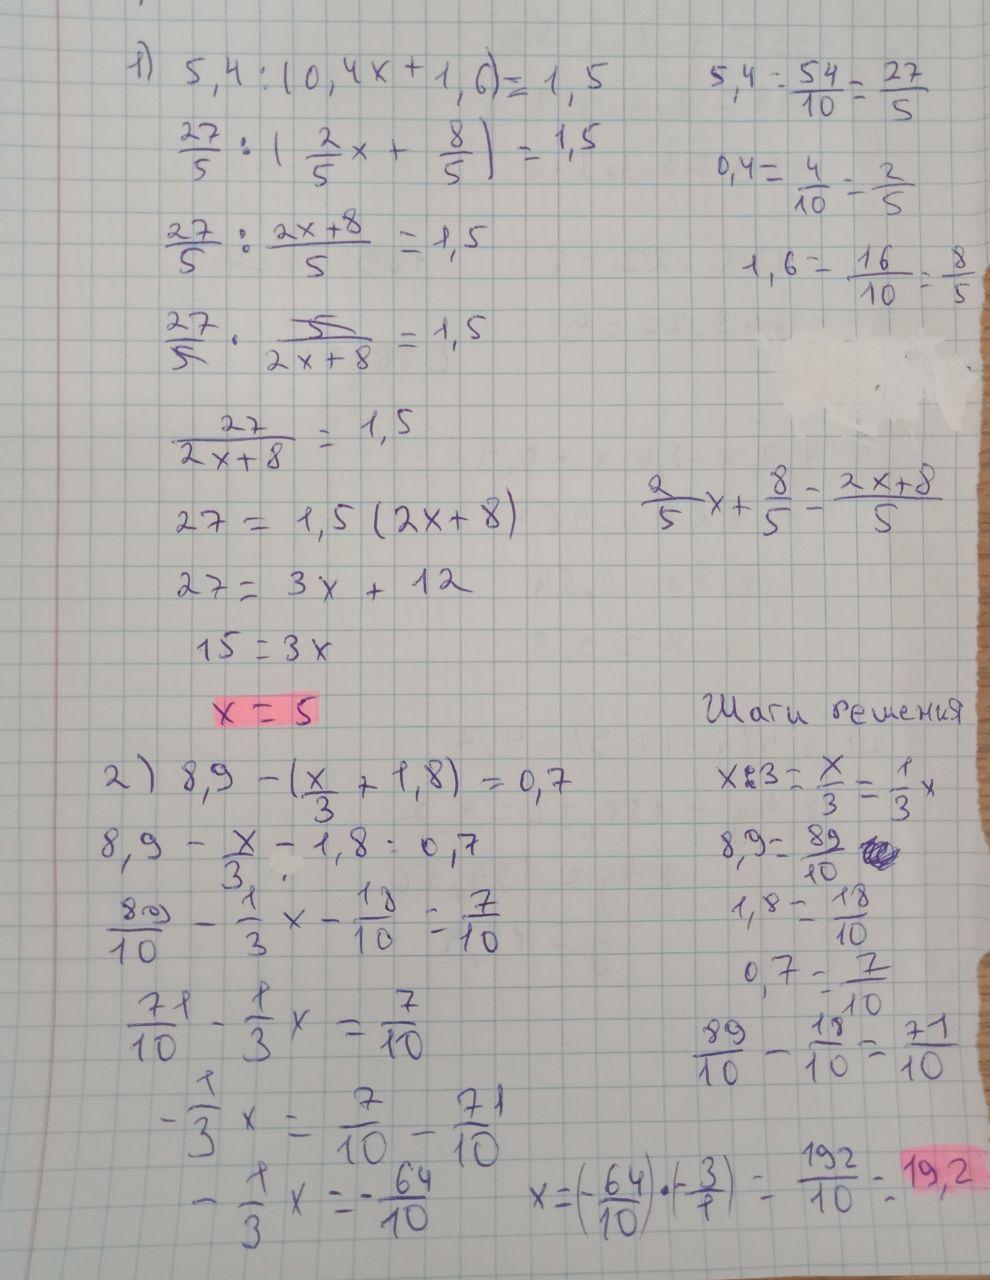 1) 5,4 : (0,4x + 1,6) = 1,5
5,4 = 54/10 = 27/5
27/5 : (2/5 x + 8/5) = 1,5
0,4 = 4/10 = 2/5
27/5 : (2x+8)/5 = 1,5
1,6 = 16/10 = 8/5
27/5 · 5/(2x+8) = 1,5
27/(2x+8) = 1,5
2/5 x + 8/5 = (2x+8)/5
27 = 1,5 (2x + 8)
27 = 3x + 12
15 = 3x
x = 5
Шаги решения
2) 8,9 - (x/3 + 1,8) = 0,7
x:3 = x/3 = 1/3 x
8,9 - x/3 - 1,8 = 0,7
8,9 = 89/10
89/10 - 1/3 x - 18/10 = 7/10
1,8 = 18/10
0,7 = 7/10
71/10 - 1/3 x = 7/10
89/10 - 18/10 = 71/10
-1/3 x = 7/10 - 71/10
-1/3 x = -64/10
x = (-64/10) · (-3/1) = 192/10 = 19,2